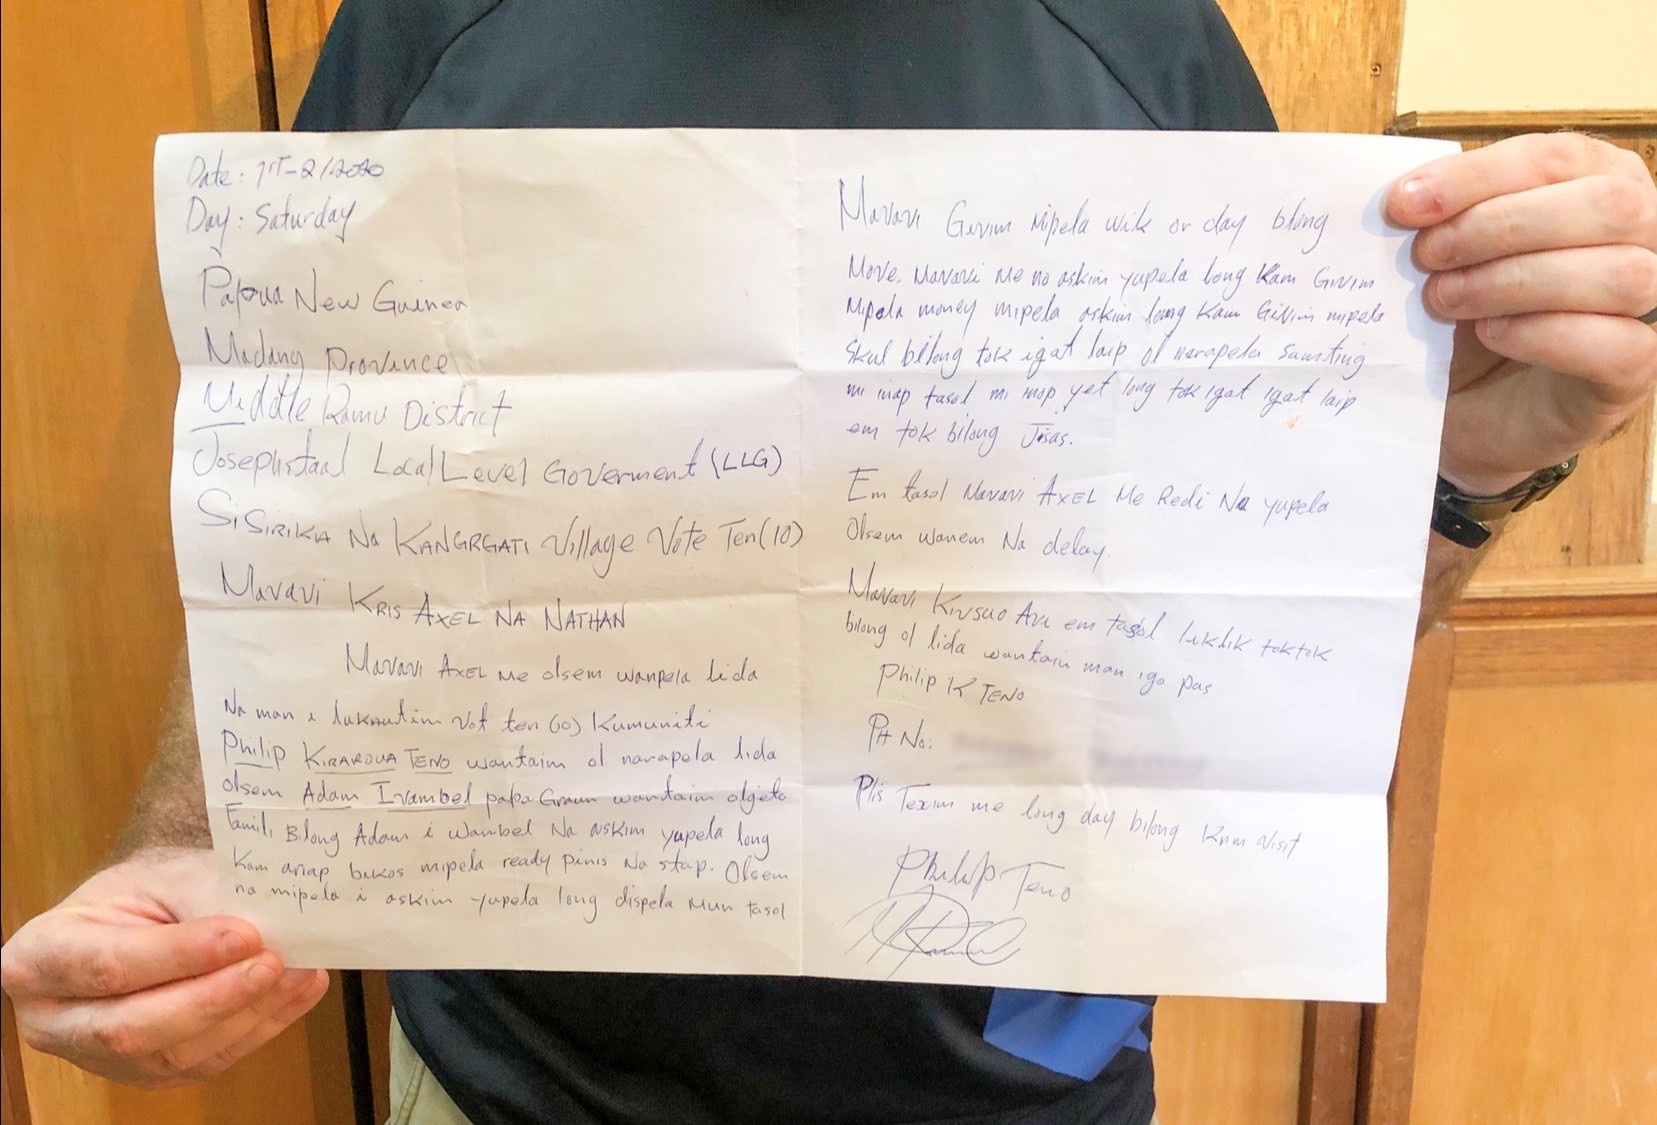 Date: 1ST-2/2020
Day: Saturday
Papua New Guinea
Madang Province
Middle Ramu District
Josephstaal Local Level Goverment (LLG)
SiSIRIKIA Na KANGRGATI Village Vote Ten(10)
Mavavi KRIS AXEL NA NATHAN
Mavavi AXEL Me olsem wanpela lida
Na man i lukautim Vot ten (10) Kumuniti
Philip KIRAROUA TENO wantaim ol narapela lida
olsem Adam Ivambel papa Graun wantaim olgeta
Famili Bilong Adam i wambel Na askim yupela long
Kam ariap bikos mipela ready pinis Na stap. Olsem
na mipela i askim yupela long dispela Mun tasol
Mavavi Givim Mipela wik or day blong
Move. Mavavi Me no askim yupela long Kam Givim
Mipela money mipela askim long Kam Givim mipela
Skul bilong tok igat laip ol narapela samting
mi inap tasol mi nop yet long tok igat igat laip
em tok bilong Jisas.
Em tasol Mavavi AXEL Me Redi Na yupela
Olsem wanem Na delay.
Mavavi Avi em tasol liklik toktok
bilong ol lida wantaim man igo pas
Philip K TENO
PH No:
Plis Texim me long day bilong Kam Visit
Philip Teno